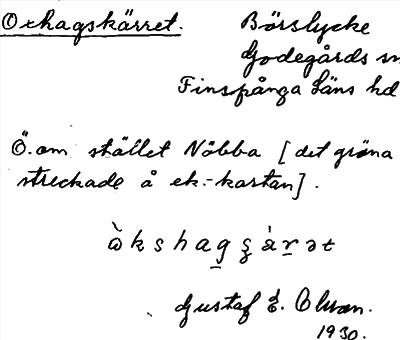 Oxhagskärret. Börslycke
Godegårds sn
Finspånga Läns hd
Ö. om stället Nöbba [det gröna
streckade å ek.-kartan].
Gustaf E. Olson.
1930.